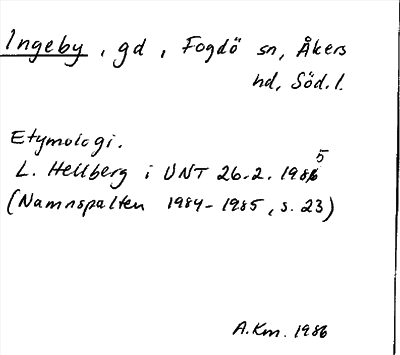 Ingeby, gd, Fogdö sn, Åkers
hd, Söd. l.
Etymologi.
L. Hellberg i UNT 26.2.1985
(Namnspalten 1984-1985, s. 23)
A.Km. 1986